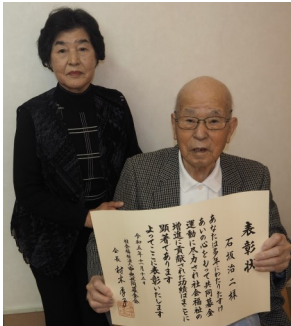 表彰状
石坂治二様
あなたは多年にわたりたすけ
あいの心をもって共同募金
運動に尽力され社会福祉の
増進に貢献された功績はまことに
顕著であります
よってここに表彰いたします
令和五年十一月十五日
会長